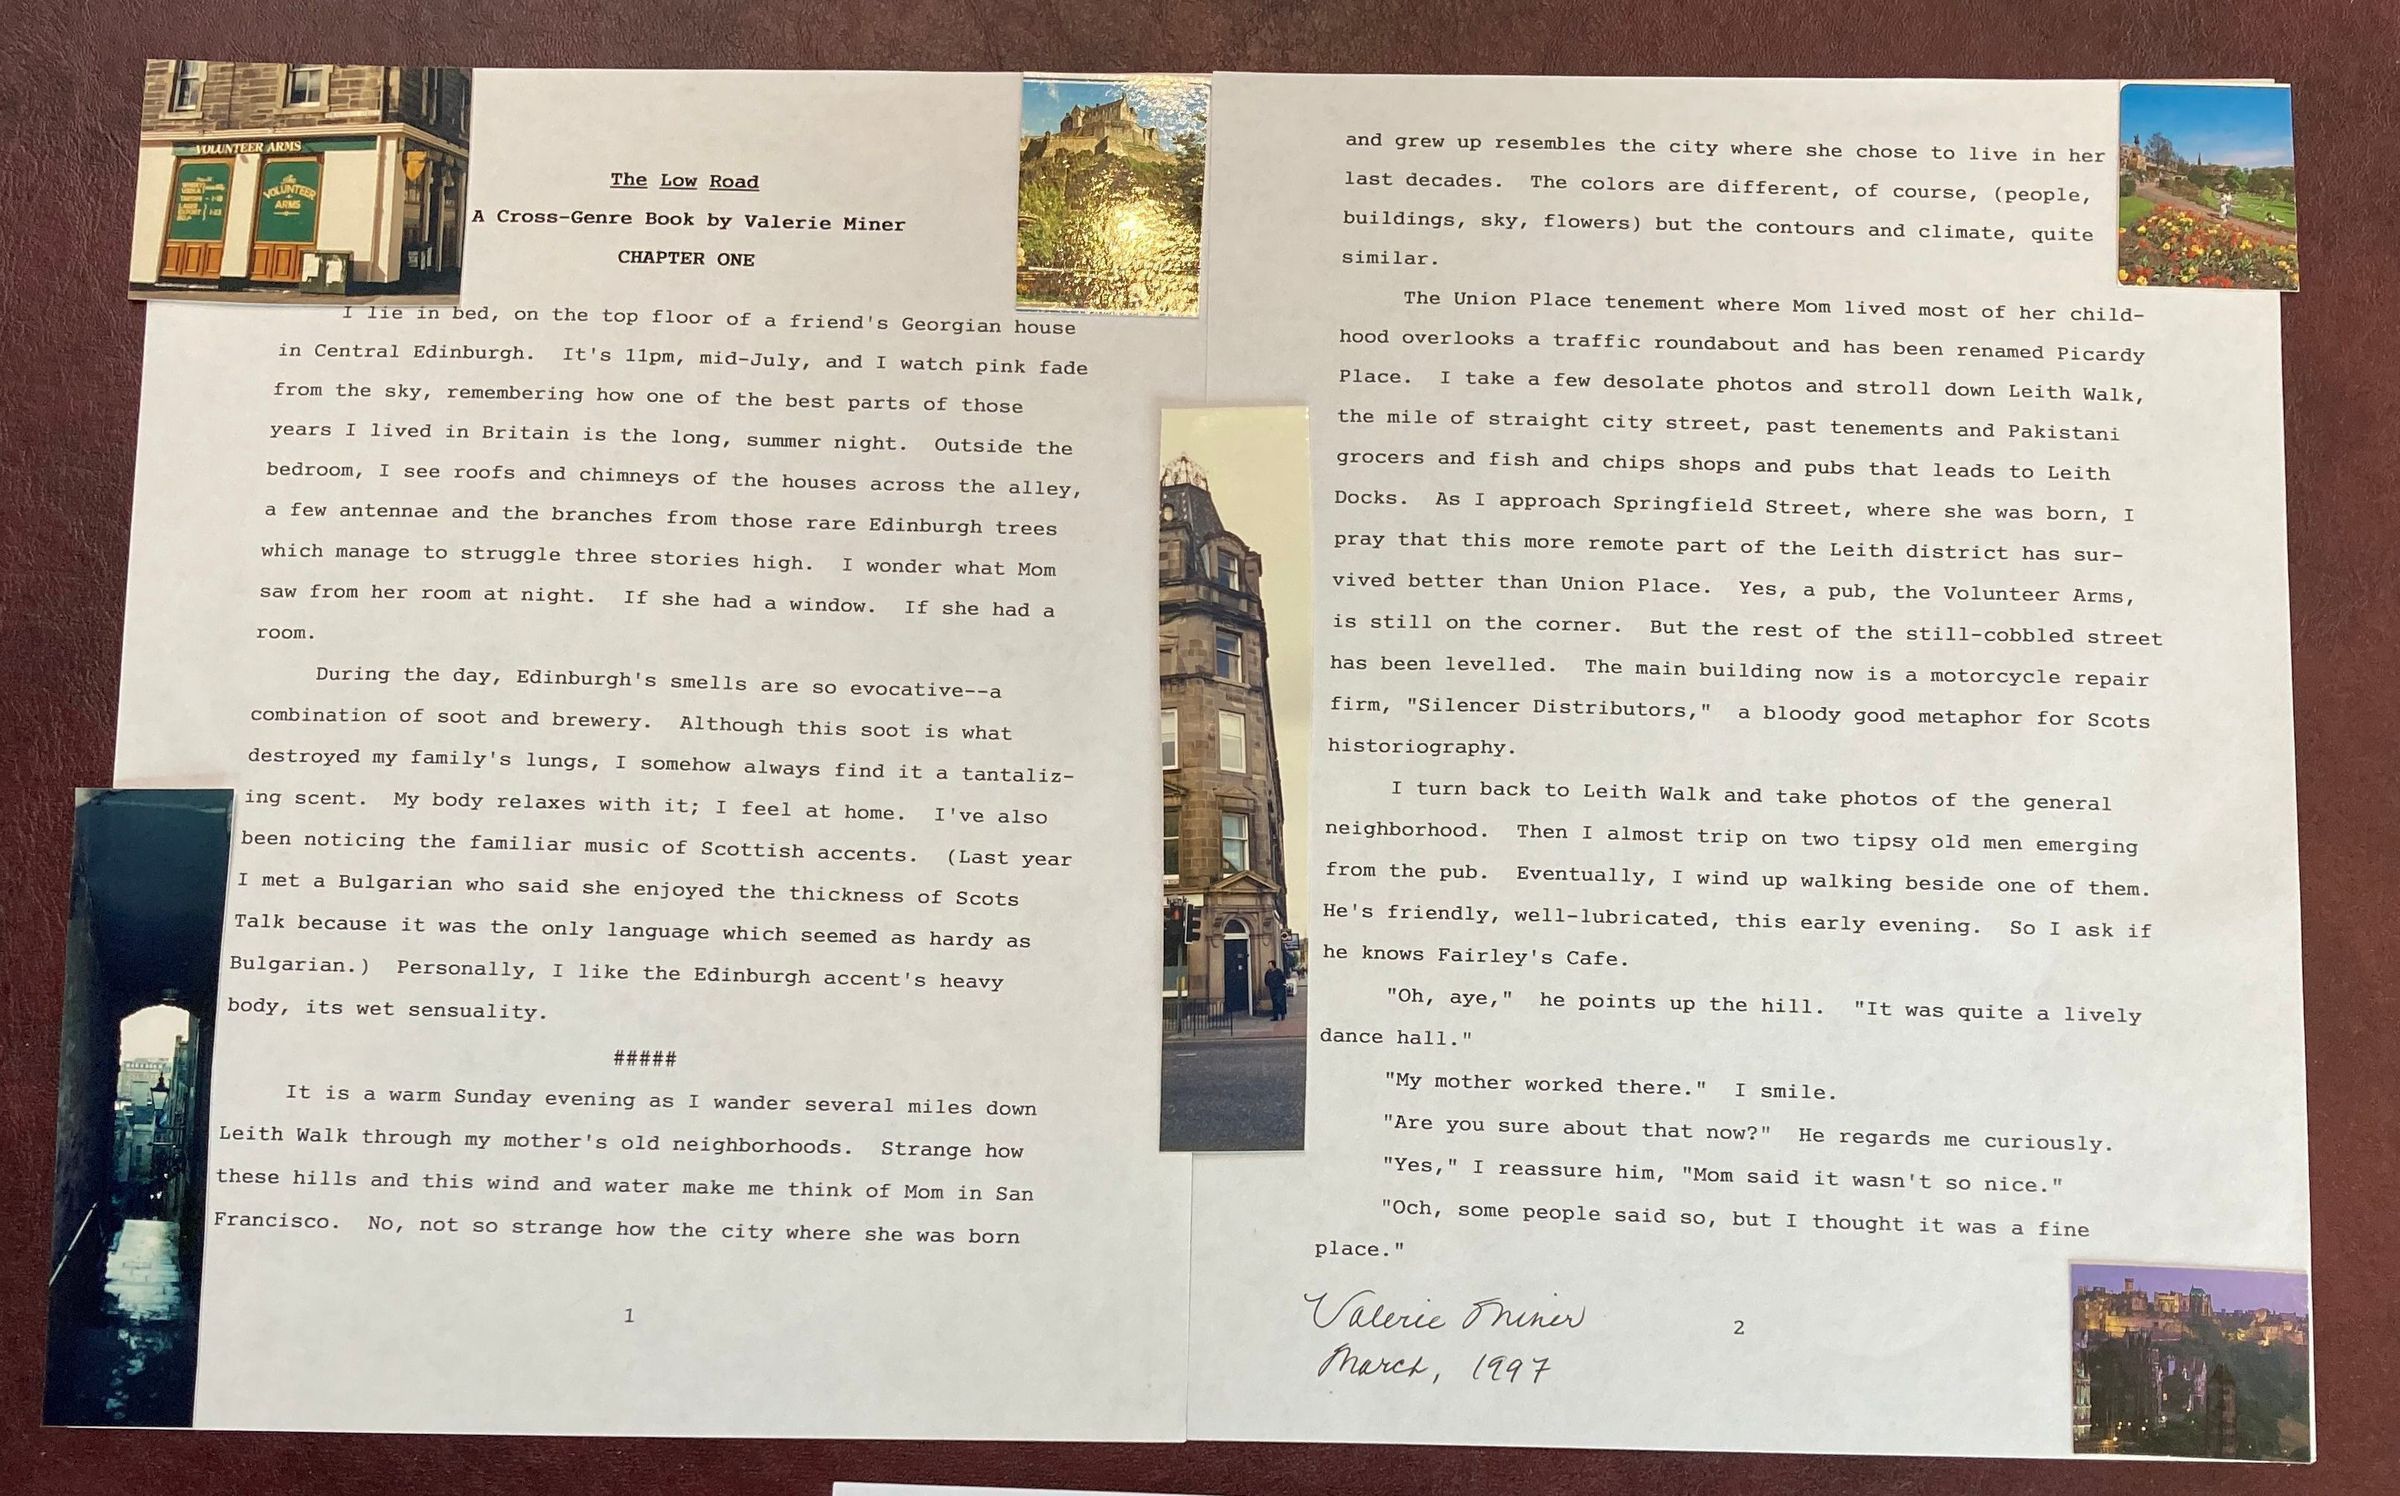 VOLUNTEER ARMS
VOLUNTEER
ARMS
The Low Road
A Cross-Genre Book by Valerie Miner
CHAPTER ONE
I lie in bed, on the top floor of a friend's Georgian house
in Central Edinburgh. It's 11pm, mid-July, and I watch pink fade
from the sky, remembering how one of the best parts of those
years I lived in Britain is the long, summer night. Outside the
bedroom, I see roofs and chimneys of the houses across the alley,
a few antennae and the branches from those rare Edinburgh trees
which manage to struggle three stories high. I wonder what Mom
saw from her room at night. If she had a window. If she had a
room.
During the day, Edinburgh's smells are so evocative--a
combination of soot and brewery. Although this soot is what
destroyed my family's lungs, I somehow always find it a tantaliz-
ing scent. My body relaxes with it; I feel at home. I've also
been noticing the familiar music of Scottish accents. (Last year
I met a Bulgarian who said she enjoyed the thickness of Scots
Talk because it was the only language which seemed as hardy as
Bulgarian.) Personally, I like the Edinburgh accent's heavy
body, its wet sensuality.
#####
It is a warm Sunday evening as I wander several miles down
Leith Walk through my mother's old neighborhoods. Strange how
these hills and this wind and water make me think of Mom in San
Francisco. No, not so strange how the city where she was born
1
and grew up resembles the city where she chose to live in her
last decades. The colors are different, of course, (people,
buildings, sky, flowers) but the contours and climate, quite
similar.
The Union Place tenement where Mom lived most of her child-
hood overlooks a traffic roundabout and has been renamed Picardy
Place. I take a few desolate photos and stroll down Leith Walk,
the mile of straight city street, past tenements and Pakistani
grocers and fish and chips shops and pubs that leads to Leith
Docks. As I approach Springfield Street, where she was born, I
pray that this more remote part of the Leith district has sur-
vived better than Union Place. Yes, a pub, the Volunteer Arms,
is still on the corner. But the rest of the still-cobbled street
has been levelled. The main building now is a motorcycle repair
firm, "Silencer Distributors," a bloody good metaphor for Scots
historiography.
I turn back to Leith Walk and take photos of the general
neighborhood. Then I almost trip on two tipsy old men emerging
from the pub. Eventually, I wind up walking beside one of them.
He's friendly, well-lubricated, this early evening. So I ask if
he knows Fairley's Cafe.
"Oh, aye," he points up the hill. "It was quite a lively
dance hall."
"My mother worked there." I smile.
"Are you sure about that now?" He regards me curiously.
"Yes," I reassure him, "Mom said it wasn't so nice."
"Och, some people said so, but I thought it was a fine
place."
Valerie Miner
March, 1997
2